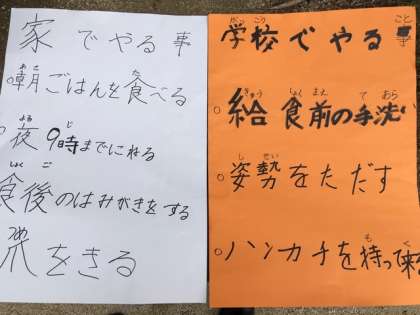 家でやる事
朝ごはんを食べる
夜9時までにねる
食後のはみがきをする
爪をきる
学校でやる事
給食前の手洗い
姿勢をただす
ハンカチを持って来る